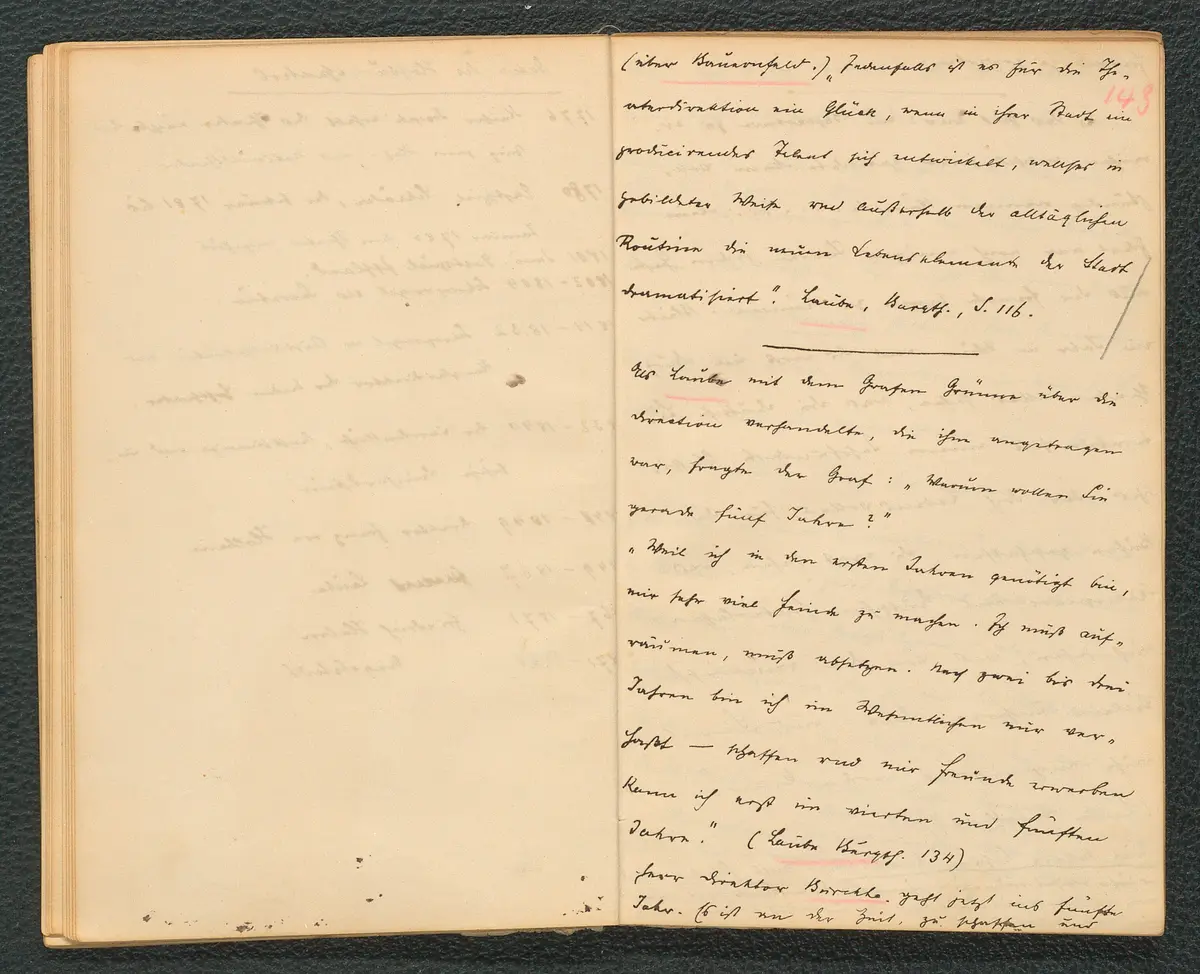 (über Bauernfeld.) „Jedenfalls ist es für die The-
143
aterdirektion ein Glück, wenn in ihrer Stadt ein
producirendes Talent sich entwickelt, welches in
gebildeter Weise und außerhalb der alltäglichen
Routine die neuen Lebenselemente der Stadt
dramatisiert“. Laube, Burgth., S. 116.
Als Laube mit dem Grafen Grünne über die
Direction verhandelte, die ihm angetragen
war, fragte der Graf: „Warum wollen Sie
gerade fünf Jahre?“
„Weil ich in den ersten Jahren genötigt bin,
mir sehr viel Feinde zu machen. Ich muß auf-
räumen, muß absetzen. Nach zwei bis drei
Jahren bin ich im Wesentlichen nur ver-
haßt — schaffen und mir Freunde erwerben
kann ich erst im vierten und fünften
Jahre.“ (Laube Burgth. 134)
Herr Direktor Burckh. geht jetzt ins fünfte
Jahr. Es ist an der Zeit, zu schaffen und